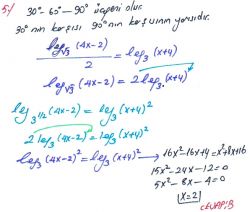 5-) 30°-60°-90° üçgeni olur.
30°nın karşısı 90°nın karşısının yarısıdır.
log√3 (4x-2) / 2 = log3 (x+4)
log√3 (4x-2) = 2log3 (x+4)
log3^1/2 (4x-2) = log3 (x+4)²
2log3 (4x-2) = log3 (x+4)²
log3 (4x-2)² = log3 (x+4)² → 16x²-16x+4 = x²+8x+16
15x²-24x-12=0
5x²-8x-4=0
x=2
CEVAP:B